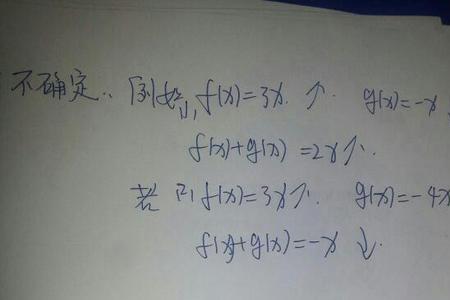 不确定.. 例如:(1) f(x)=3x. ↑. g(x)=-x
f(x)+g(x)=2x↑.
若 (2) f(x)=3x↑. g(x)=-4x
f(x)+g(x)=-x ↓.